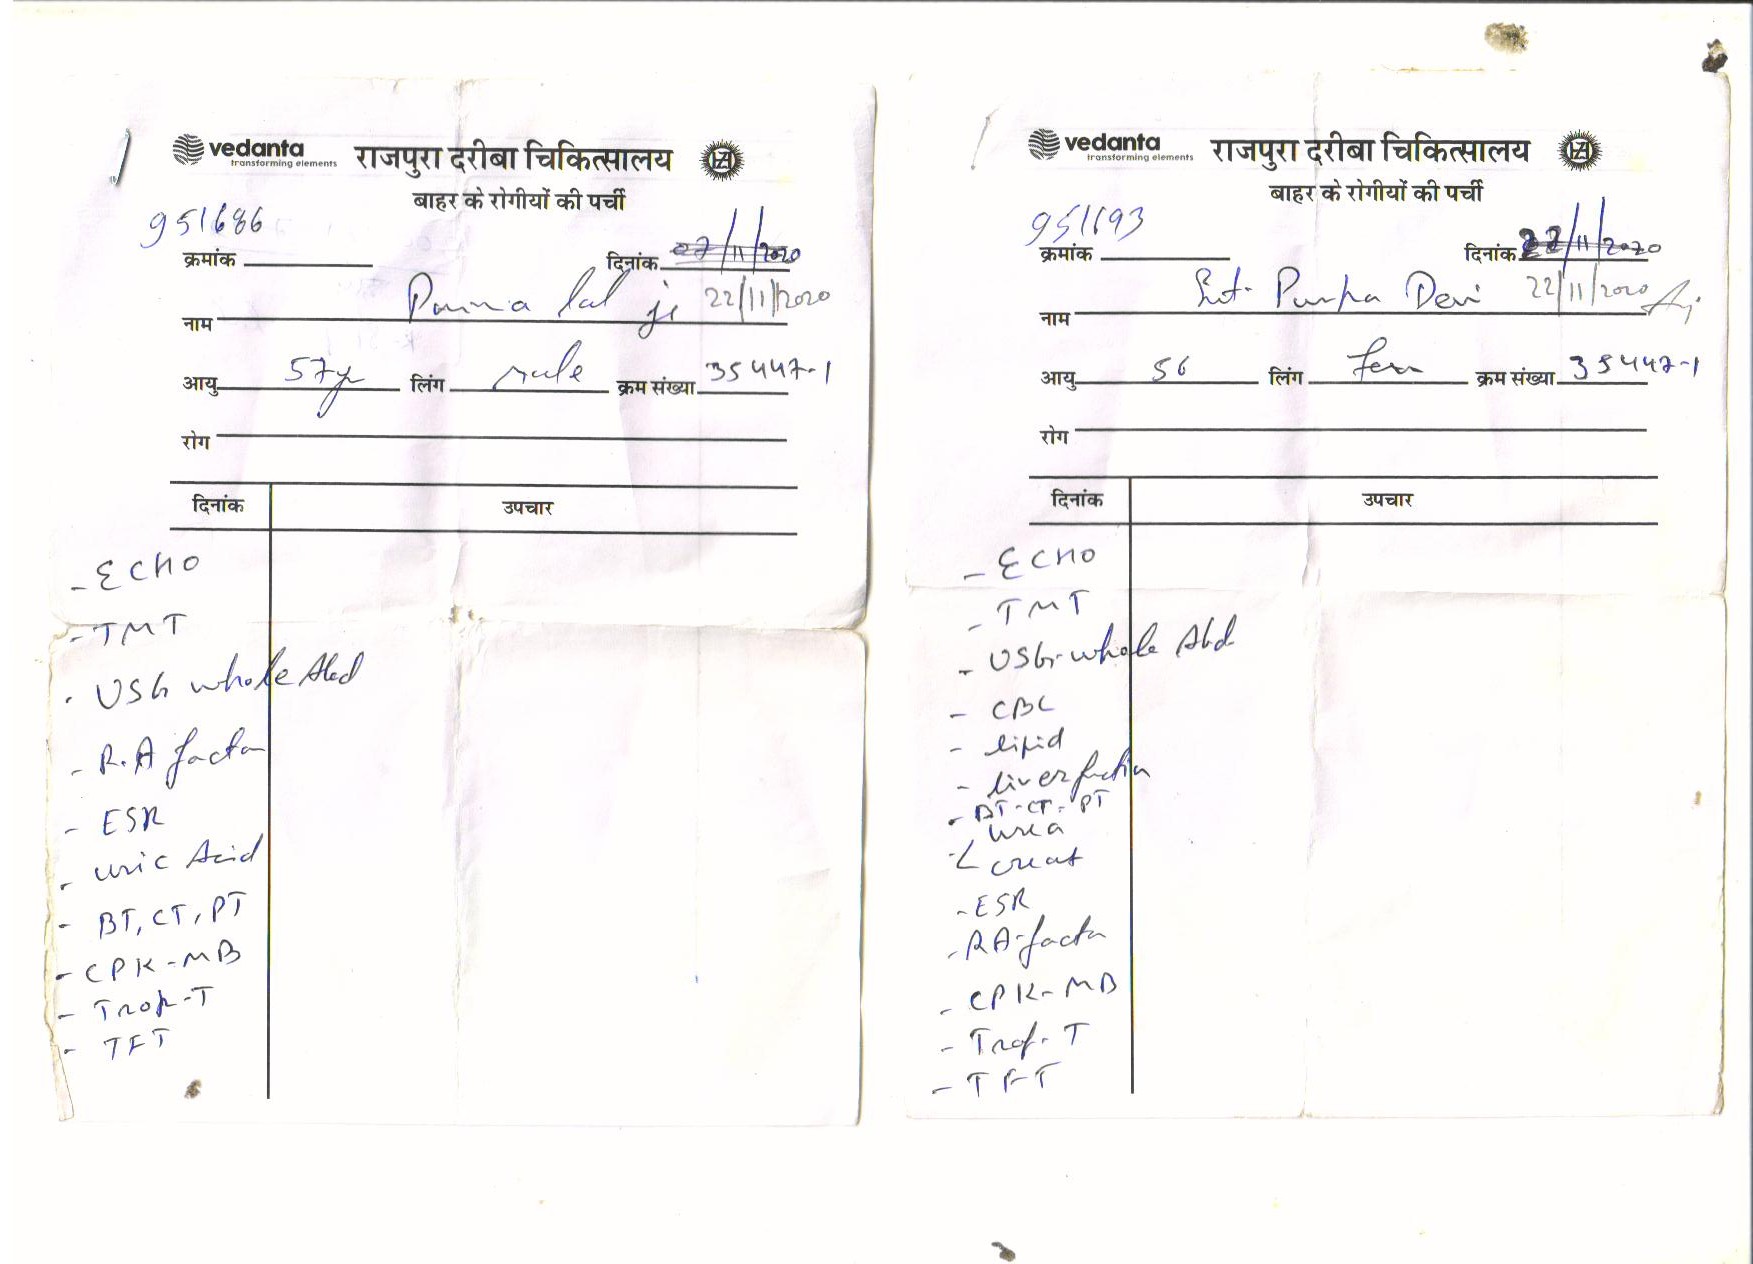 vedanta
transforming elements
राजपुरा दरीबा चिकित्सालय
बाहर के रोगीयों की पर्ची
951686
क्रमांक
दिनांक 07/11/2020
22/11/2020
नाम Panna lal ji
आयु 57yr लिंग male क्रम संख्या 35447-1
रोग
दिनांक उपचार
- ECHO
- TMT
- USG whole Abd
- R.A factor
- ESR
- uric Acid
- BT, CT, PT
- CPK-MB
- Trop-T
- TFT
vedanta
transforming elements
राजपुरा दरीबा चिकित्सालय
बाहर के रोगीयों की पर्ची
951693
क्रमांक
दिनांक 22/11/2020
22/11/2020
नाम Smt. Puspa Devi
आयु 56 लिंग fem क्रम संख्या 35447-1
रोग
दिनांक उपचार
- ECHO
- TMT
- USG-whole Abd
- CBC
- lipid
- liver function
- BT-CT-PT
urea
creat
- ESR
- RA-factor
- CPK-MB
- Trop-T
- TFT